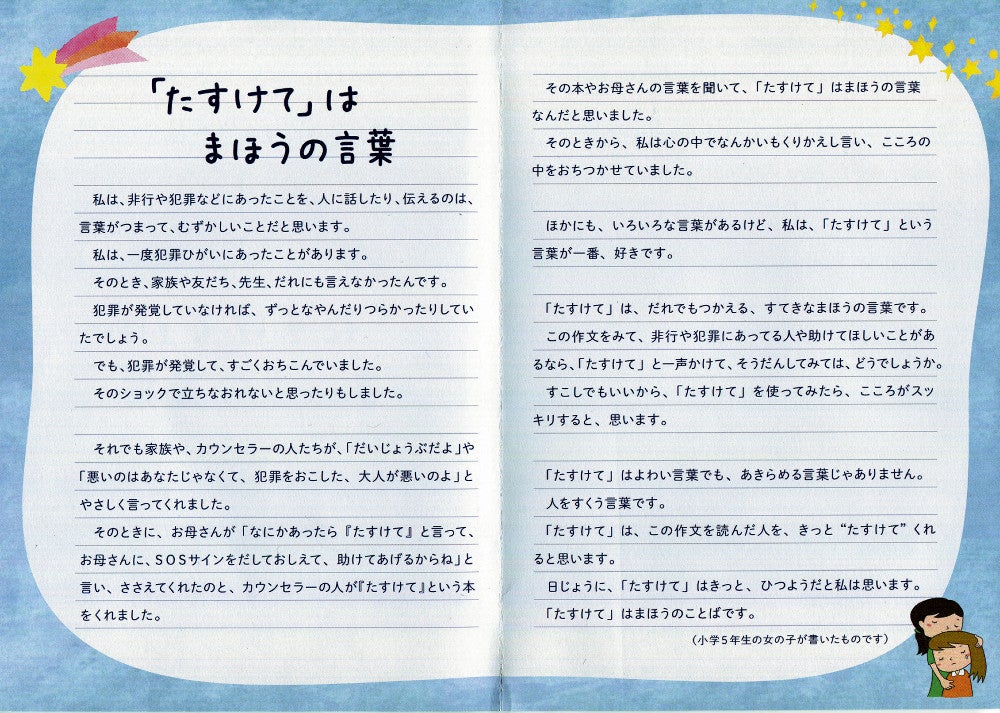 「たすけて」は
まほうの言葉
私は、非行や犯罪などにあったことを、人に話したり、伝えるのは、
言葉がつまって、むずかしいことだと思います。
私は、一度犯罪ひがいにあったことがあります。
そのとき、家族や友だち、先生、だれにも言えなかったんです。
犯罪が発覚していなければ、ずっとなやんだりつらかったりしてい
たでしょう。
でも、犯罪が発覚して、すごくおちこんでいました。
そのショックで立ちなおれないと思ったりもしました。
それでも家族や、カウンセラーの人たちが、「だいじょうぶだよ」や
「悪いのはあなたじゃなくて、犯罪をおこした、大人が悪いのよ」と
やさしく言ってくれました。
そのときに、お母さんが「なにかあったら『たすけて』と言って、
お母さんに、SOSサインをだしておしえて、助けてあげるからね」と
言い、ささえてくれたのと、カウンセラーの人が『たすけて』という本
をくれました。
その本やお母さんの言葉を聞いて、「たすけて」はまほうの言葉
なんだと思いました。
そのときから、私は心の中でなんかいもくりかえし言い、こころの
中をおちつかせていました。
ほかにも、いろいろな言葉があるけど、私は、「たすけて」という
言葉が一番、好きです。
「たすけて」は、だれでもつかえる、すてきなまほうの言葉です。
この作文をみて、非行や犯罪にあってる人や助けてほしいことがあ
るなら、「たすけて」と一声かけて、そうだんしてみては、どうでしょうか。
すこしでもいいから、「たすけて」を使ってみたら、こころがスッ
キリすると、思います。
「たすけて」はよわい言葉でも、あきらめる言葉じゃありません。
人をすくう言葉です。
「たすけて」は、この作文を読んだ人を、きっと“たすけて”くれ
ると思います。
日じょうに、「たすけて」はきっと、ひつようだと私は思います。
「たすけて」はまほうのことばです。
（小学5年生の女の子が書いたものです）